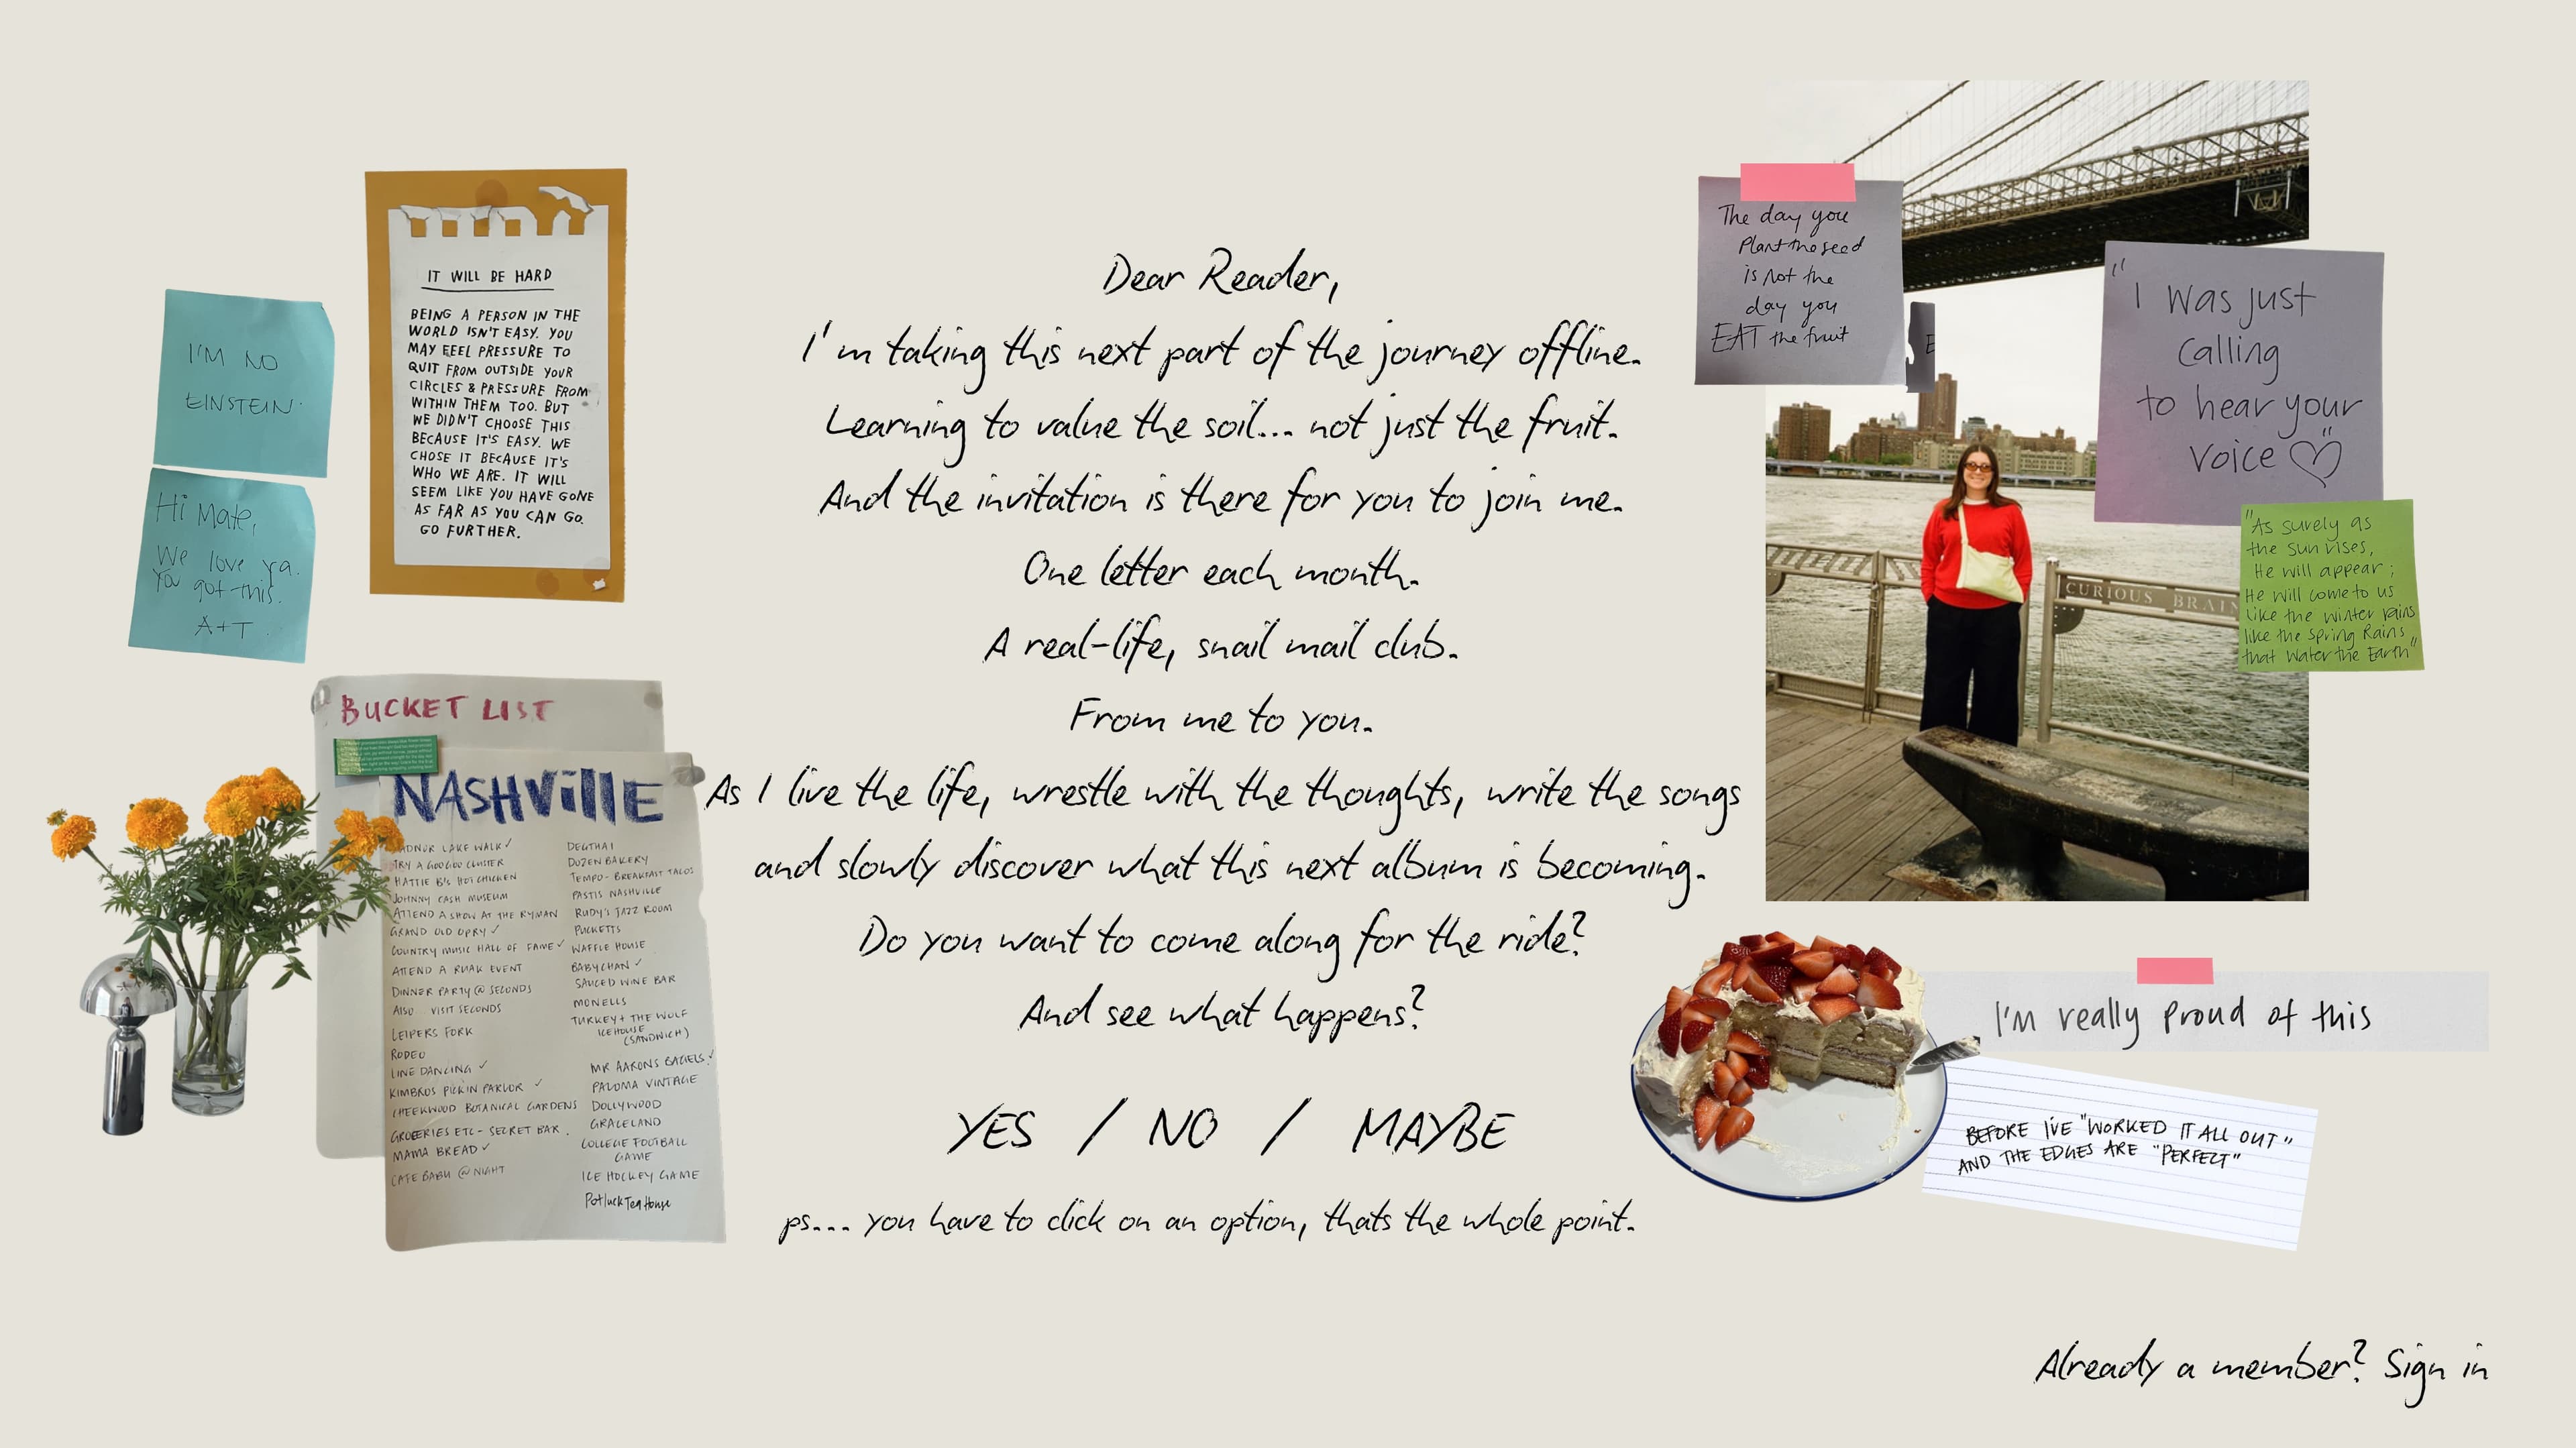 I'M NO
EINSTEIN
Hi Mate,
We love ya.
You got this.
A+T
IT WILL BE HARD
BEING A PERSON IN THE
WORLD ISN'T EASY. YOU
MAY FEEL PRESSURE TO
QUIT FROM OUTSIDE YOUR
CIRCLES & PRESSURE FROM
WITHIN THEM TOO. BUT
WE DIDN'T CHOOSE THIS
BECAUSE IT'S EASY. WE
CHOSE IT BECAUSE IT'S
WHO WE ARE. IT WILL
SEEM LIKE YOU HAVE GONE
AS FAR AS YOU CAN GO.
GO FURTHER.
BUCKET LIST
NASHVillE
LAKE WALK ✓
TRY A GOO GOO CLUSTER
HATTIE B's HOT CHICKEN
JOHNNY CASH MUSEUM
ATTEND A SHOW AT THE RYMAN
GRAND OLD OPRY ✓
COUNTRY MUSIC HALL OF FAME ✓
ATTEND A EVENT
DINNER PARTY @ SECONDS
ALSO... VISIT SECONDS
LEIPERS FORK
RODEO
LINE DANCING ✓
KIMBROS PICKIN PARLOR ✓
CHEEKWOOD BOTANICAL GARDENS
GROCERIES ETC - SECRET BAR.
MAMA BREAD ✓
CAFE BABU @ NIGHT
DEGTHAI
DOZEN BAKERY
TEMPO - BREAKFAST TACOS
PASTIS NASHVILLE
RUDY'S JAZZ ROOM
PUCKETTS
WAFFLE HOUSE
BABYCHAN ✓
SAUCED WINE BAR
MONELLS
TURKEY + THE WOLF
ICEHOUSE
(SANDWICH)
MR AARONS BAGELS ✓
PALOMA VINTAGE
DOLLYWOOD
GRACELAND
COLLEGE FOOTBALL
GAME
ICE HOCKEY GAME
Potluck Tea House
Dear Reader,
I'm taking this next part of the journey offline.
Learning to value the soil... not just the fruit.
And the invitation is there for you to join me.
One letter each month.
A real-life, snail mail club.
From me to you.
As I live the life, wrestle with the thoughts, write the songs
and slowly discover what this next album is becoming.
Do you want to come along for the ride?
And see what happens?
YES / NO / MAYBE
ps... you have to click on an option, thats the whole point.
The day you
Plant the seed
is Not the
day you
EAT the fruit
E
"I was just
Calling
to hear your
voice ♡"
"As surely as
the sun rises,
He will appear;
He will come to us
like the winter rains
like the Spring Rains
that Water the Earth"
CURIOUS BRAIN
I'm really proud of this
BEFORE I'VE "WORKED IT ALL OUT"
AND THE EDGES ARE "PERFECT"
Already a member? Sign in